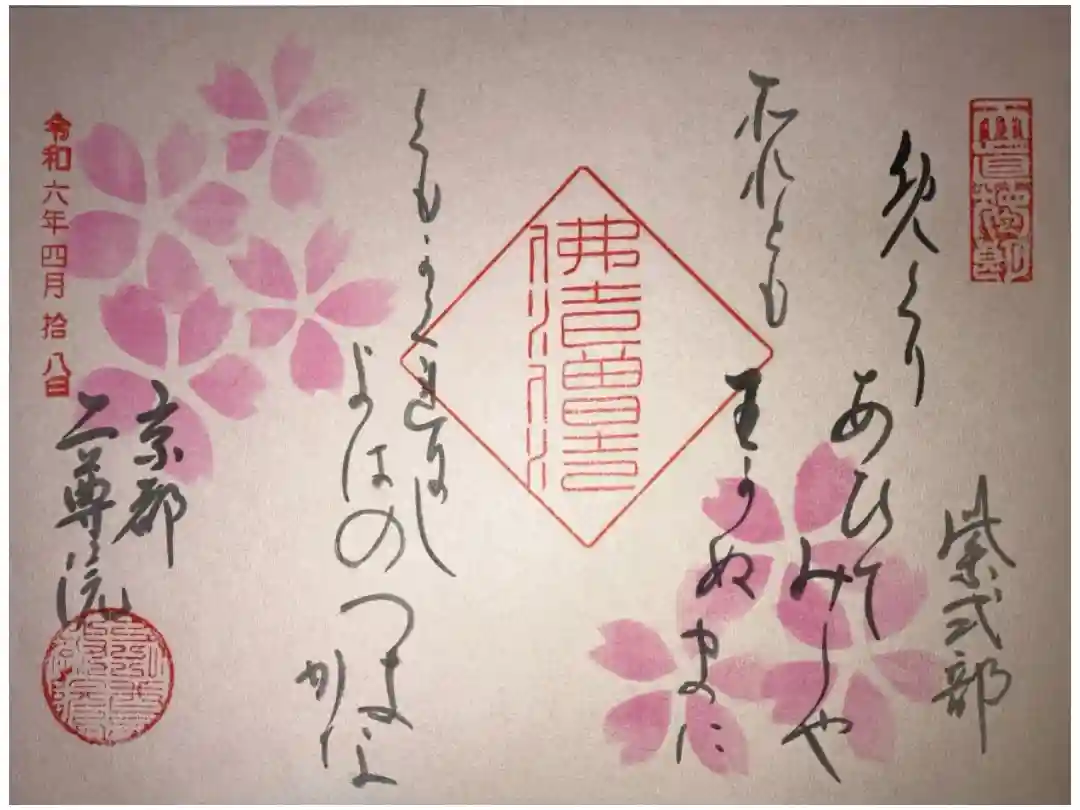 紫式部
免くり
あひて
みしや
所れとも
王可ぬ
まに
佛法僧
くも可くれ尓し
よはの
つき
かな
令和六年四月拾八日
京都
二尊院